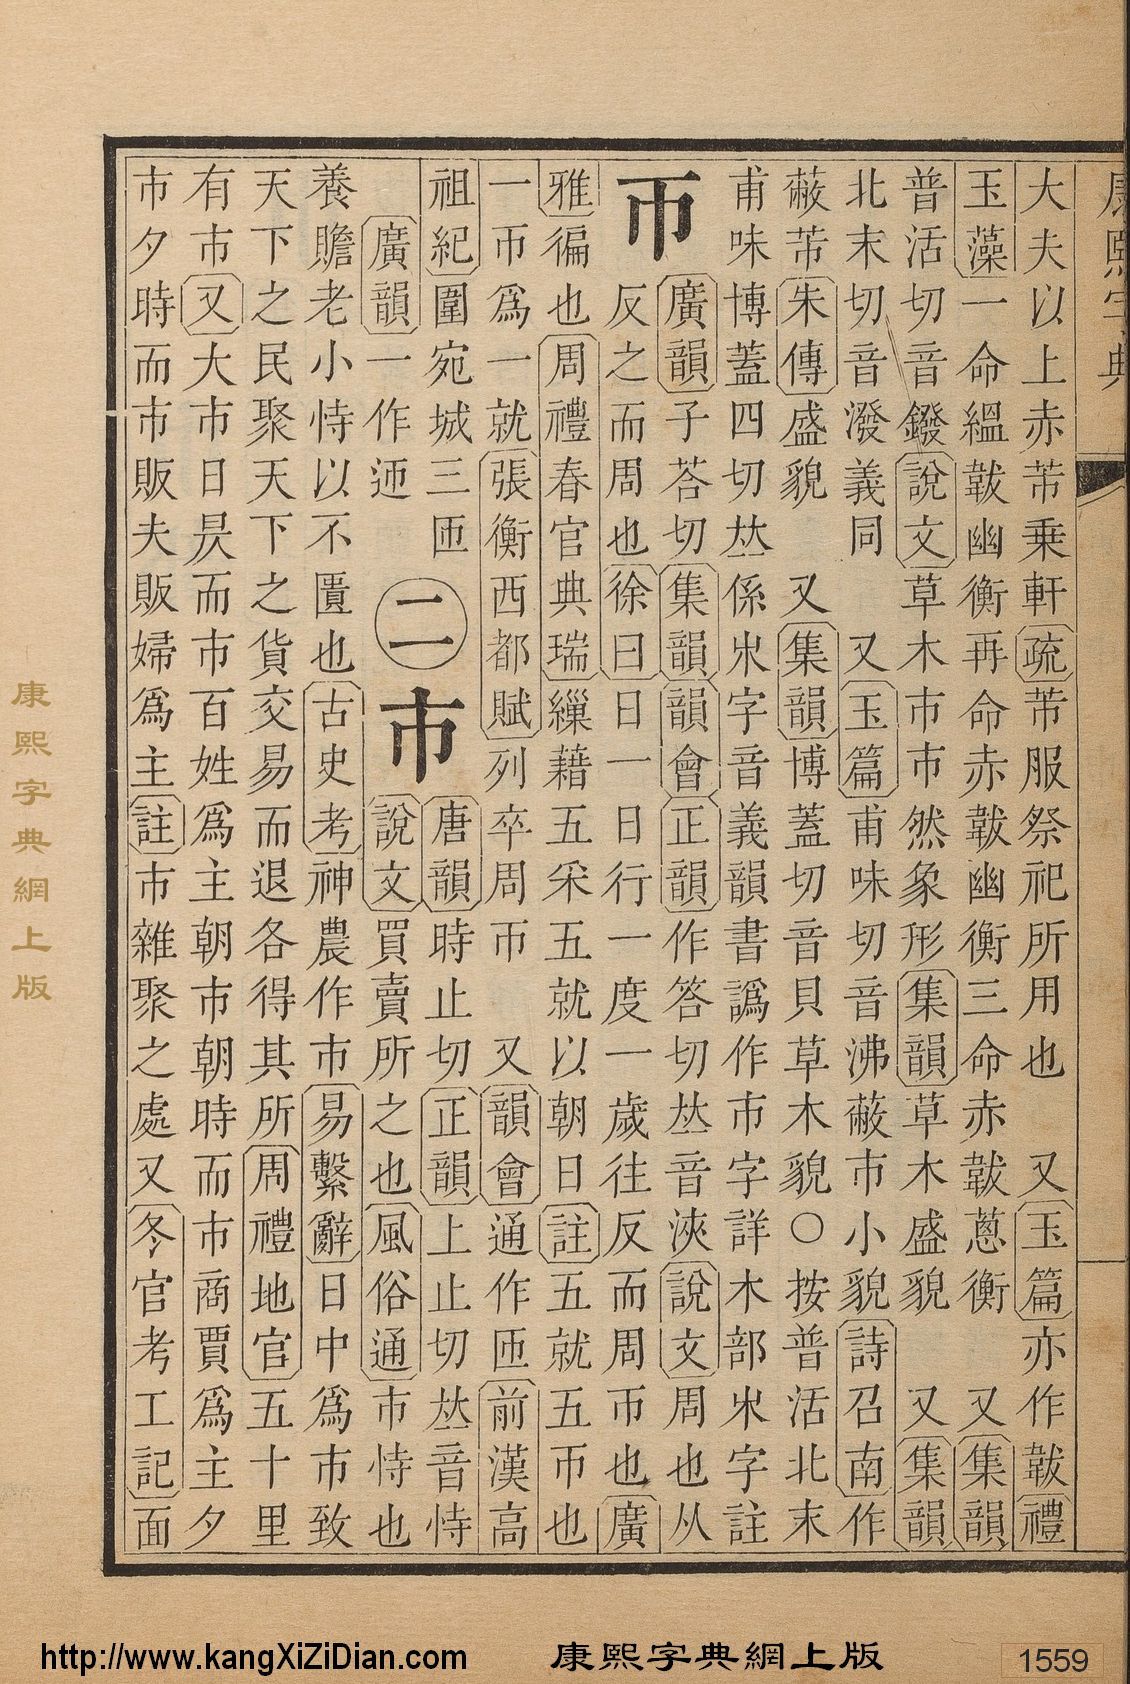 康熙字典
大夫以上赤芾乗軒疏芾服祭祀所用也　又玉篇亦作韍禮
玉藻一命縕韍幽衡再命赤韍幽衡三命赤韍蔥衡　又集韻
普活切音鏺說文草木巿巿然象形集韻草木盛貌　又集韻
北末切音潑義同　又玉篇甫味切音沸蔽巿小貌詩召南作
蔽芾朱傳盛貌　又集韻博蓋切音貝草木貌○按普活北末
甫味博蓋四切𠀤係𣎵字音義韻書譌作巿字詳木部𣎵字註
帀廣韻子荅切集韻韻會正韻作答切𠀤音浹說文周也从
反之而周也徐曰日一日行一度一歲往反而周帀也廣
雅徧也周禮春官典瑞繅藉五采五就以朝日註五就五帀也
一帀爲一就張衡西都賦列卒周帀　又韻會通作匝前漢高
祖紀圍宛城三匝
廣韻一作迊
㊁市唐韻時止切正韻上止切𠀤音恃
說文買賣所之也風俗通市恃也
養贍老小恃以不匱也古史考神農作市易繫辭日中爲市致
天下之民聚天下之貨交易而退各得其所周禮地官五十里
有市又大市日昃而市百姓爲主朝市朝時而市商賈爲主夕
市夕時而市販夫販婦爲主註市雜聚之處又冬官考工記面
康熙字典網上版
http://www.kangXiZiDian.com
康熙字典網上版
1559